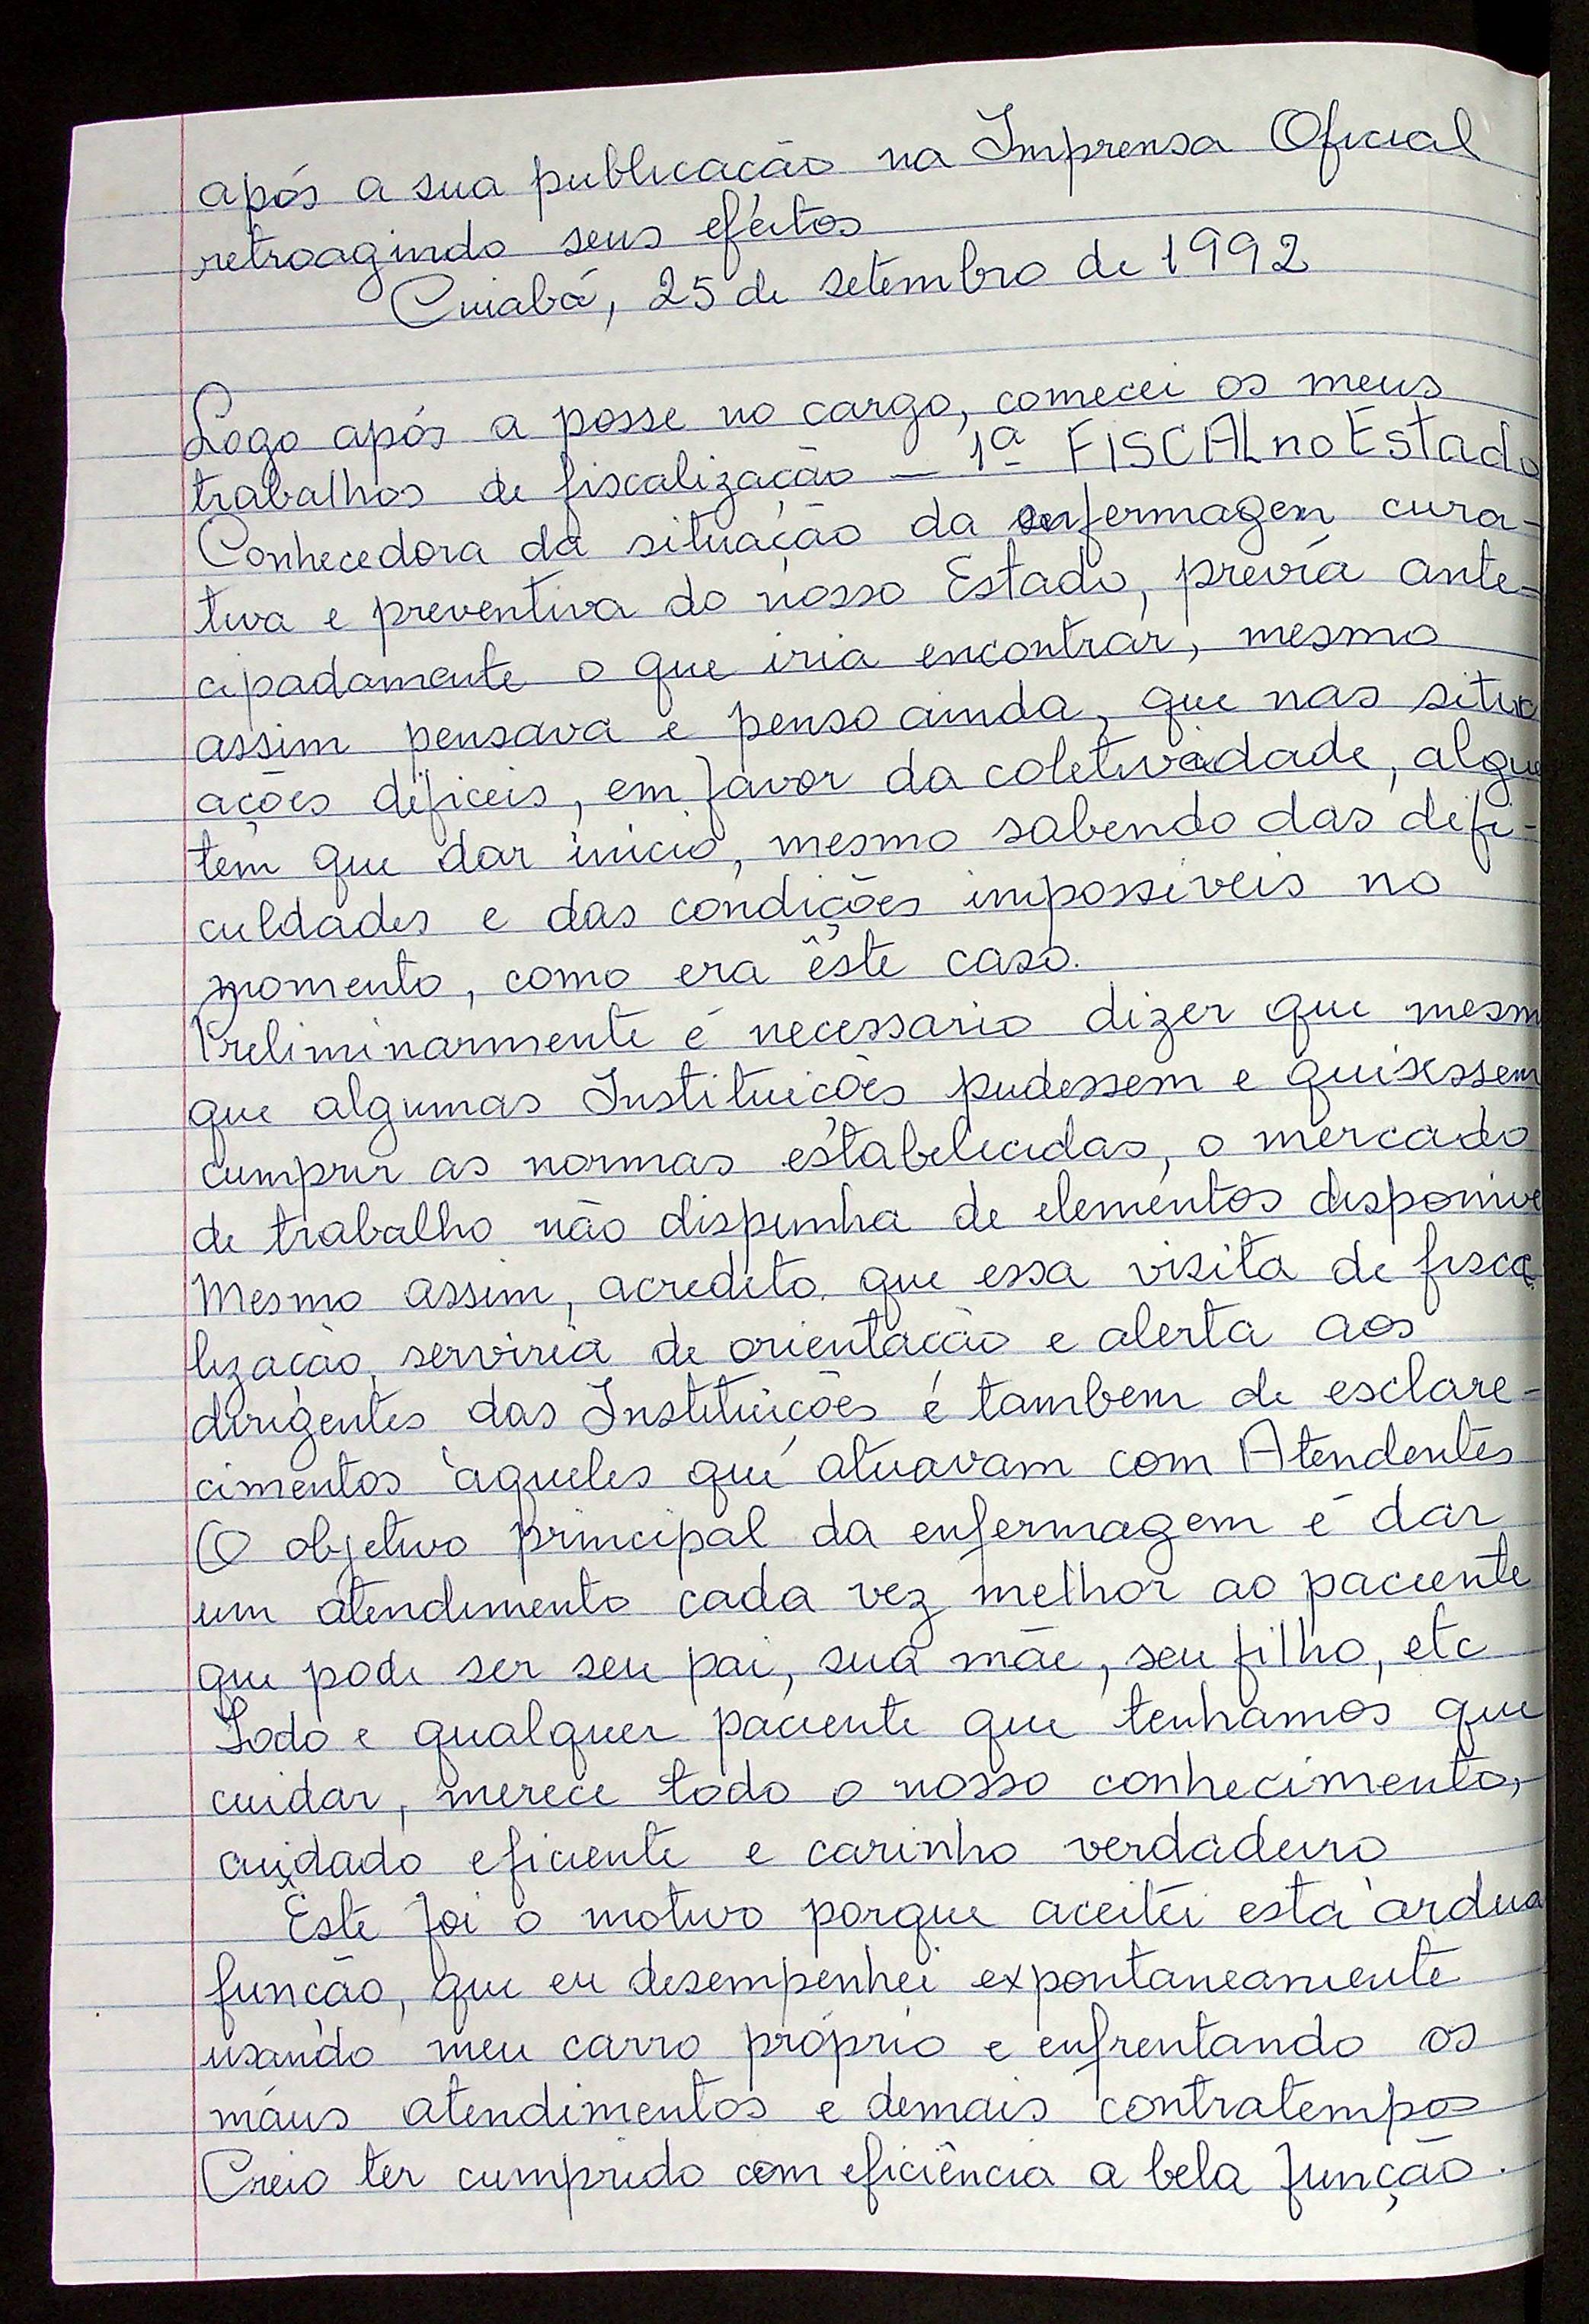 após a sua publicacão na Imprensa Oficial
retroagindo seus efeitos
Cuiabá, 25 de setembro de 1992
Logo após a posse no cargo, comecei os meus
trabalhos de fiscalização — 1ª FISCAL no Estado
Conhecedora da situação da enfermagem cura-
tiva e preventiva do nosso Estado, previa ante-
cipadamente o que iria encontrar, mesmo
assim pensava e penso ainda, que nas situa
ações difíceis, em favor da coletividade, algu
tem que dar inicio, mesmo sabendo das difi-
culdades e das condições impossiveis no
momento, como era êste caso.
Preliminarmente é necessario dizer que mesm
que algumas Instituicões pudessem e quisessem
cumprir as normas estabelecidas, o mercado
de trabalho não dispunha de elementos disponive
Mesmo assim, acredito que essa visita de fisca
lizacão, serviria de orientacão e alerta aos
dirigentes das Instituições e tambem de esclare-
cimentos àqueles que atuavam com Atendentes
O objetivo principal da enfermagem é dar
um atendimento cada vez melhor ao paciente
que pode ser seu pai, sua mãe, seu filho, etc
Todo e qualquer paciente que tenhamos que
cuidar, merece todo o nosso conhecimento,
cuidado eficiente e carinho verdadeiro
Êste foi o motivo porque aceitei esta àrdua
funcão, que eu desempenhei expontaneamente
usando meu carro próprio e enfrentando os
máus atendimentos e demais contratempos
Creio ter cumprido com eficiência a bela função.